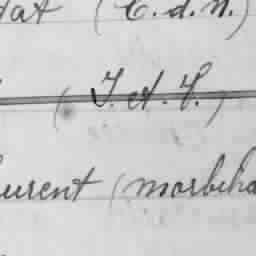 dat (C.d.N.)
(I. et. V.)
aurent (morbiha